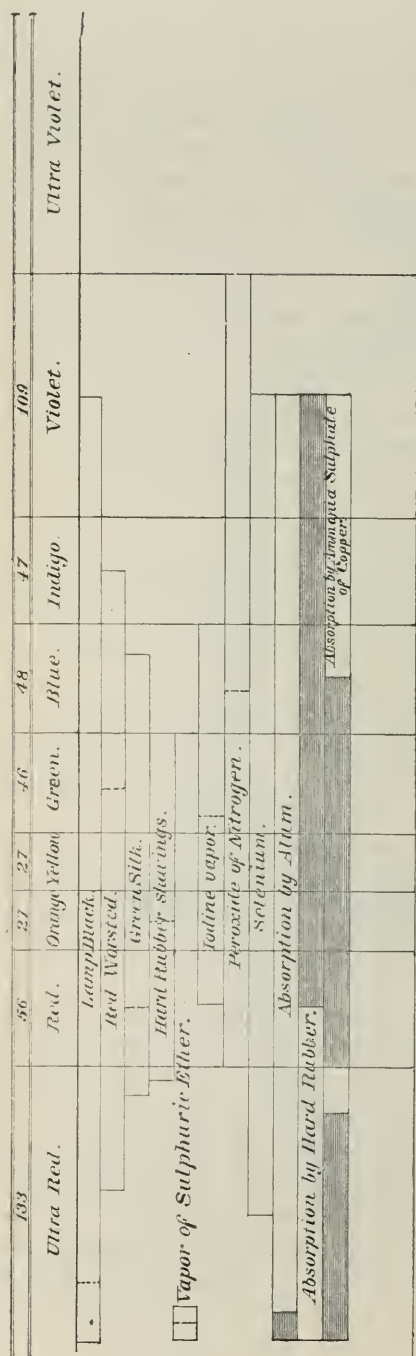 133 56 27 27 46 48 47 109
Ultra Red. Red. Orange Yellow Green. Blue. Indigo. Violet. Ultra Violet.
Lamp Black.
Red Worsted.
Green Silk.
Hard Rubber shavings.
Vapor of Sulphuric Ether.
Iodine vapor.
Peroxide of Nitrogen.
Selenium.
Absorption by Alum.
Absorption by Hard Rubber.
Absorption by Ammonia Sulphate
of Copper.